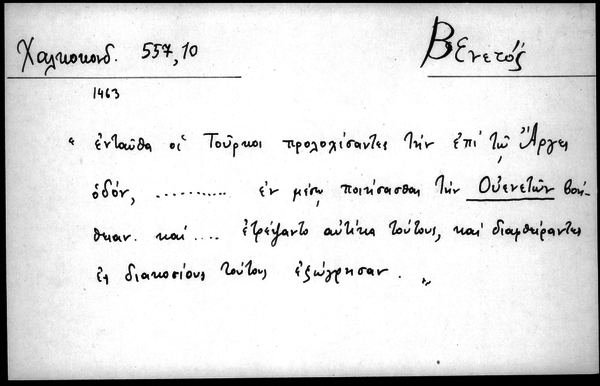 Χαλκοκονδ. 557,10
Βενετός
1463
" ἐνταῦθα οἱ Τοῦρκοι προλοχίσαντες τὴν ἐπὶ τῷ Ἄργει
ὁδόν, ........... ἐν μέσῳ ποιήσασθαι τὴν Οὐενετῶν βοή-
θειαν. καὶ .... ἐτρέψαντο αὐτίκα τούτους, καὶ διαφθείραντες
ἐς διακοσίους τούτους ἐζώγρησαν. "